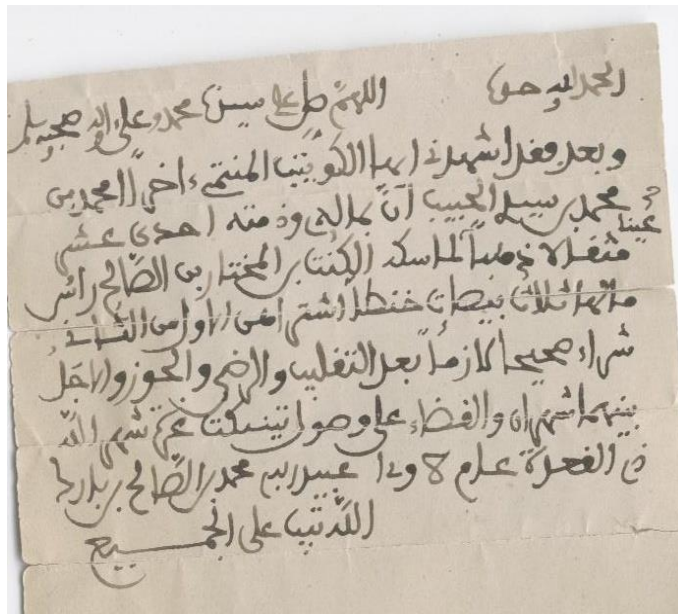 الحمد لله حق اللهم صل على سيدنا محمد وعلى اله وصحبه وسلم
وبعد فقد اشهدني ابها الكويتب المنتمي اخرا امحمد بن
محمد بن سيد الحبيب ان بماله وذمته احدى عشر
عينا
مثقالا ذهبا لماسكه الكنت بن المختار بن الصالح رانبر
مائها ثلاث بيصات خنط اشترى من الاول من الثاني
شراء صحيحا لازما بعد التقليب والرضى والحوز والاجل
بينهما شهران والقضاء على وصول تينبكت عم شهر الله
ذي القعدة عام عبيد ربه محمد بن الصالح بن
الله تب على الجميع